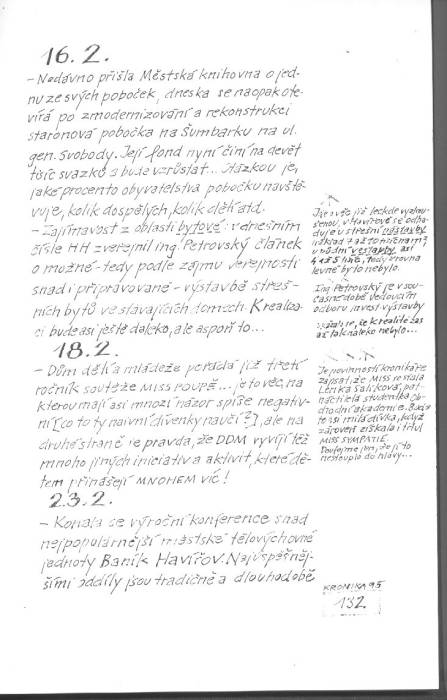 16.2.
- Nedávno přišla Městská knihovna o jed-
nu ze svých poboček, dneska se naopak ote-
vírá po zmodernizování a rekonstrukci
staronová pobočka na Šumbarku na ul.
gen. Svobody. Její fond nyní činí na devět
tisíc svazků a bude vzrůstat... Otázkou je,
jaké procento obyvatelstva pobočku navště-
vuje, kolik dospělých, kolik dětí atd.
- Zajímavost z oblasti bytové: v dnešním
čísle HH zveřejnil ing. Petrovský článek
o možné - tedy podle zájmu veřejnosti
snad i připravované - výstavbě střeš-
ních bytů ve stávajících domech. K realiza-
ci bude asi ještě daleko, ale aspoň to...
18.2.
- Dům dětí a mládeže pořádá již třetí
ročník soutěže MISS POUPĚ... je to věc, na
kterou mají asi mnozí názor spíše negativ-
ní (co to ty naivní dívenky naučí?), ale na
druhé straně je pravda, že DDM vyvíjí též
mnoho jiných iniciativ a aktivit, které dě-
tem přinášejí MNOHEM VÍC!
23.2.
- Konala se výroční konference snad
nejpopulárnější městské tělovýchovné
jednoty Baník Havířov. Nejúspěšněj-
šími oddíly jsou tradičně a dlouhodobě
Jak
v Havířově se
duje v střešní nástavby
4 x 5
levné by to nebylo.
Ing. Petrovský je v sou-
časné době vedoucím
odboru invest. výstavby
že k realitě zas
až tak daleko nebylo...
Je povinností kronikáře
zapsat, že MISS se stala
Lenka Salíková, pat-
náctiletá studentka Ob-
chodní akademie.
to asi milá dívka, když
zároveň získala i titul
MISS SYMPATIE.
Doufejme jen, že jí to
nestouplo do hlavy...
KRONIKA 95
132